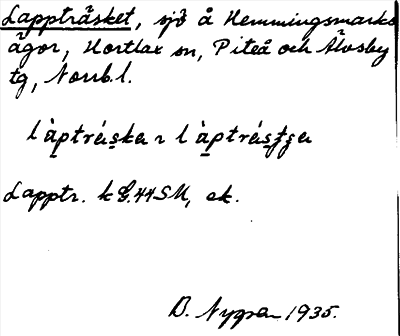 Lappträsket, sjö å Hemmingsmarks
ägor, Hortlax sn, Piteå och Älvsby
tg, Norrb. l.
làptráska ɿ làptrásʈʂa
Lapptr. k G.44SM, ek.
D. Nygren 1935.